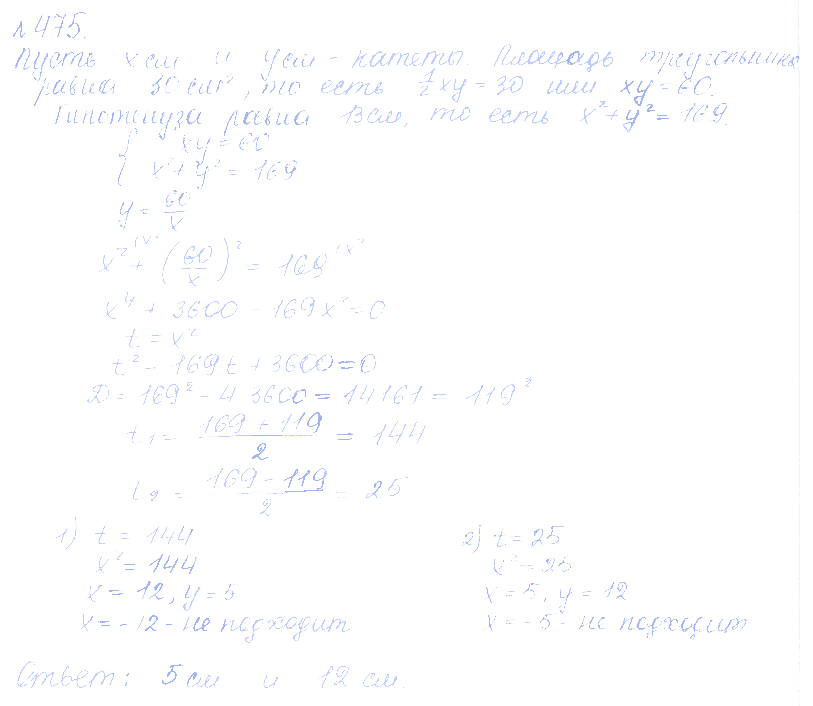 № 475.
Пусть x см и y см - катеты. Площадь треугольника
равна 30 см², то есть 1/2 xy = 30 или xy = 60.
Гипотенуза равна 13 см, то есть x² + y² = 169.
{ xy = 60
{ x² + y² = 169
y = 60/x
x² + (60/x)² = 169 |x²
x⁴ + 3600 - 169x² = 0
t = x²
t² - 169t + 3600 = 0
D = 169² - 4 3600 = 14161 = 119²
t₁ = (169 + 119)/2 = 144
t₂ = (169 - 119)/2 = 25
1) t = 144
x² = 144
x = 12, y = 5
x = -12 - не подходит
2) t = 25
x² = 25
x = 5, y = 12
x = -5 - не подходит
Ответ: 5 см и 12 см.